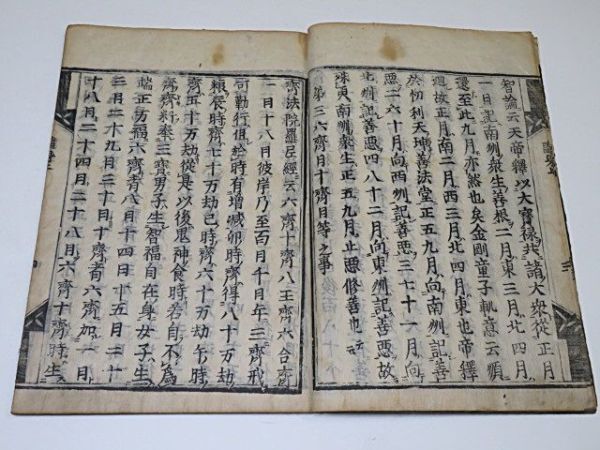 智論云天帝釋以大寶鏡共諸大衆從正月
一日記南州衆生善根二月東三月北四月
還至此九月亦然也矣金剛童子軌意云順
週故正月南二月西三月北四月東也帝釋
於忉利天住善法堂正五九月向南州記善
悪二六十月向西州記善悪三七十一月向
北州記善悪四八十二月向東州記善悪故
殊更南州衆生正五九月止悪修善也云
第三六齊日十齊日等之事
齊法院羅尼經云六齊十齊八王齊六合齊
一日十八日彼岸乃至百日千日年三齊戒
可勤行但給時有増減卯時齊得八十万劫
粮辰時齊七十万劫巳時齊六十万劫午時
齊五十万劫從是以後鬼神食時若自不爲
齊齊料奉三寶男子生智福自在身女子生
端正万福六齊者八日十四日十五日二十
三日二十九日三十日十齊者六齊加一日
十八日二十四日二十八日六齊十齊時生